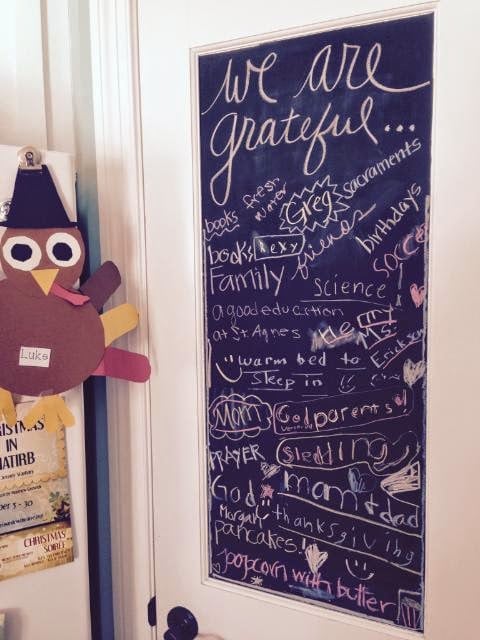 we are
grateful...
books
fresh
water
Greg
sacraments
birthdays
books
Lexy
friends
soccer
Family
science
a good education
at St. Agnes
Me
Ms.
Erickson
warm bed to
sleep in
Mom
Godparents!
PRAYER
sledding
God
mom & dad
Morgan
thanksgiving
pancakes!
popcorn with butter
Luke
IN
CHRISTMAS